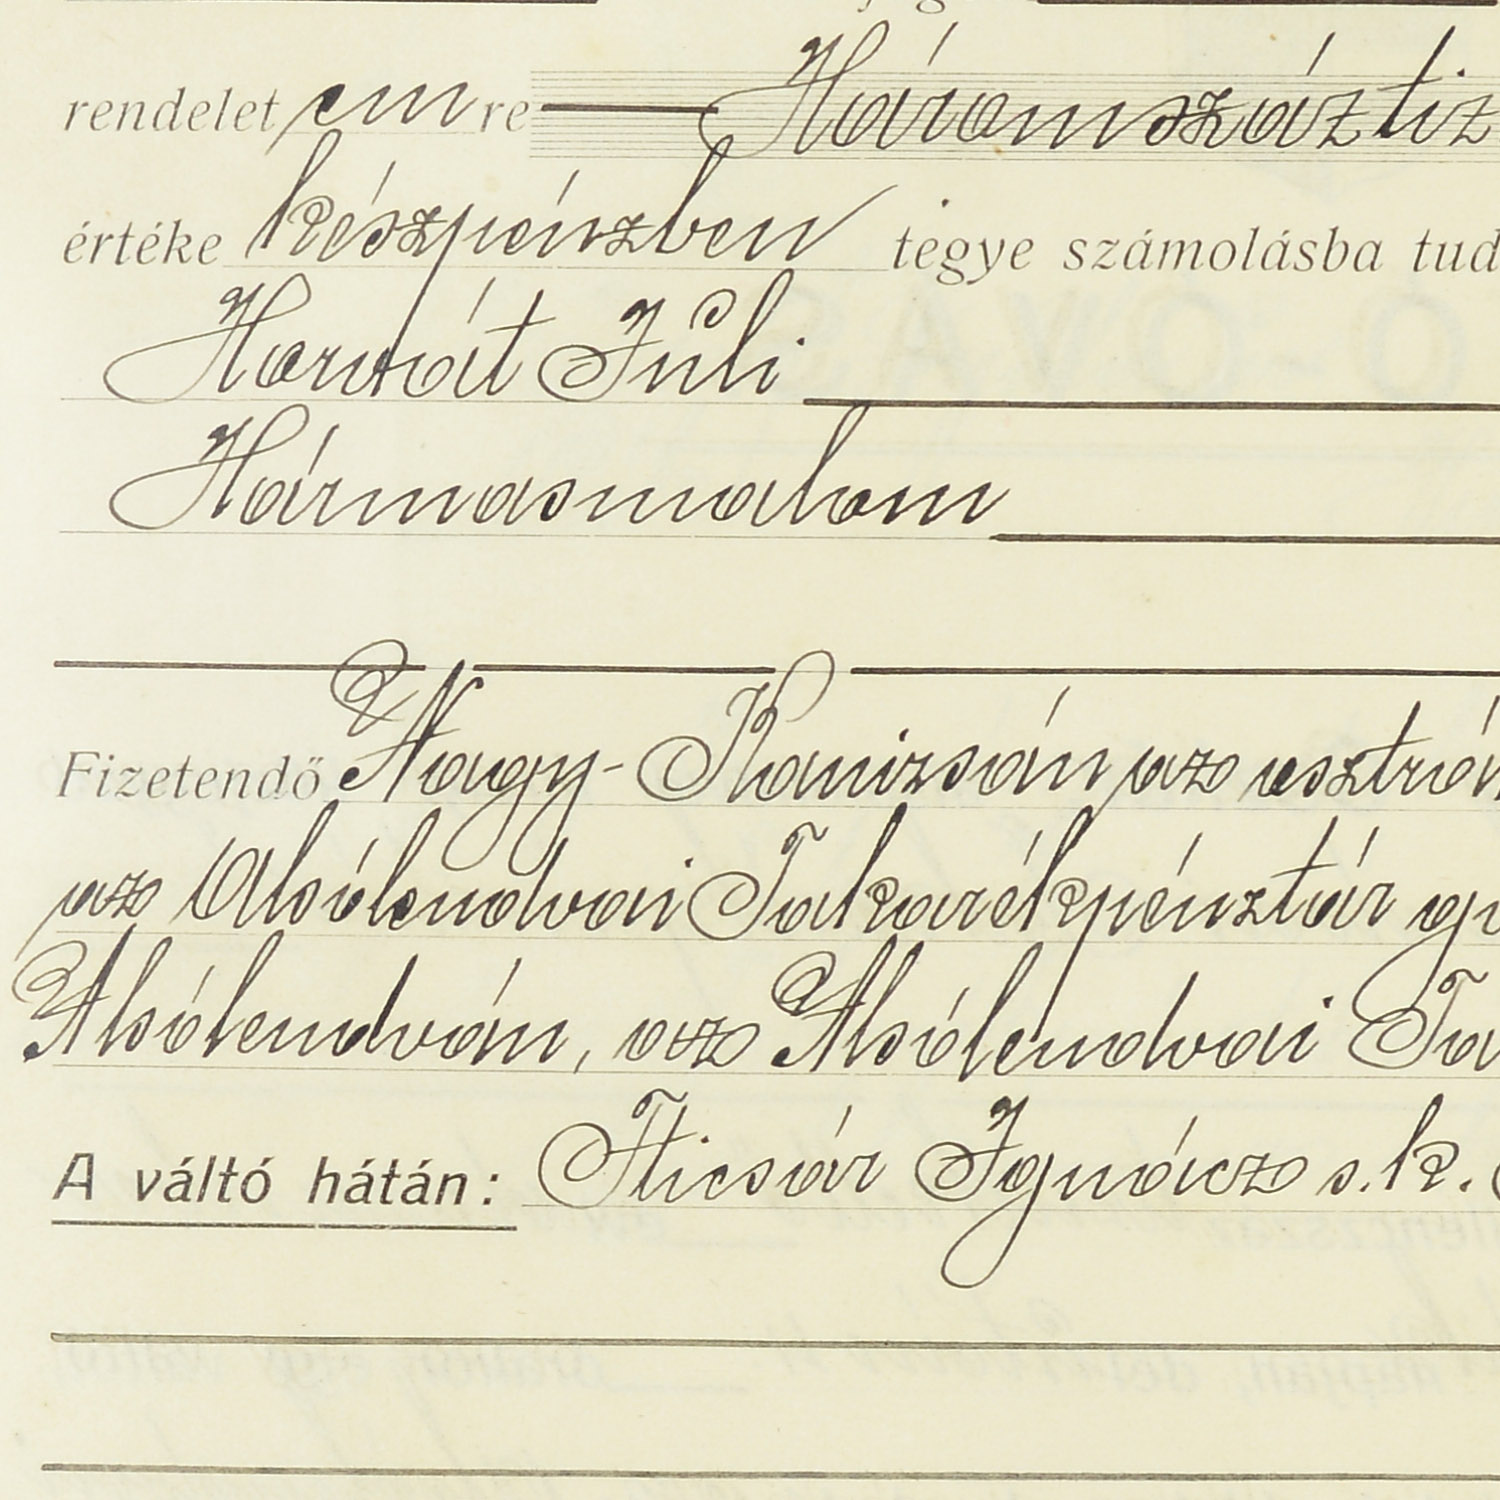 rendeletemre Háromszáztiz
értéke készpénzben tegye számolásba tud
Horvát Juli
Hármasmalom
Fizetendő Nagy-Kanizsán az osztrá
az Alsólendvai Takarékpénztár
Alsólendván, az Alsólendvai Ta
A váltó hátán: Ficsár Ignácz s.k.